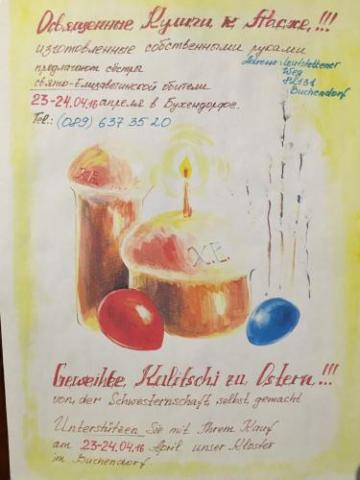 Освященные Куличи к Пасхе!!!
изготовленные собственными руками
предлагают сёстра
свято-Елизаветинской обители
23-24.04.16 апреля в Бухендорфе.
Tel.: (089) 637 35 20
Adresse:
Weg
Buchendorf
X.B.
X.B.
Geweihte Kulitschi zu Ostern!!!
von der Schwesternschaft selbst gemacht
Unterstützen Sie mit Ihrem Kauf
am 23-24.04.16 April unser Kloster
in Buchendorf